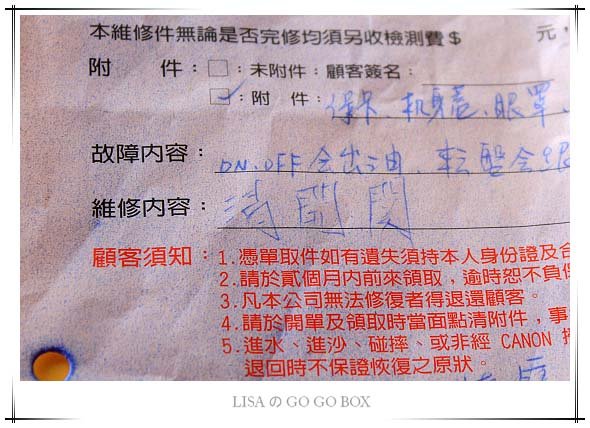 本維修件無論是否完修均須另收檢測費$ 元，
附 件：□：未附件：顧客簽名：
☑：附 件：保卡、机身蓋、眼罩、
故障內容：ON、OFF會出油、転盤會
維修內容：清開関
顧客須知：1.憑單取件如有遺失須持本人身份證及
2.請於貳個月內前來領取，逾時恕不負
3.凡本公司無法修復者得退還顧客。
4.請於開單及領取時當面點清附件，事
5.進水、進沙、碰摔、或非經 CANON
退回時不保證恢復之原狀。
LISA の GO GO BOX